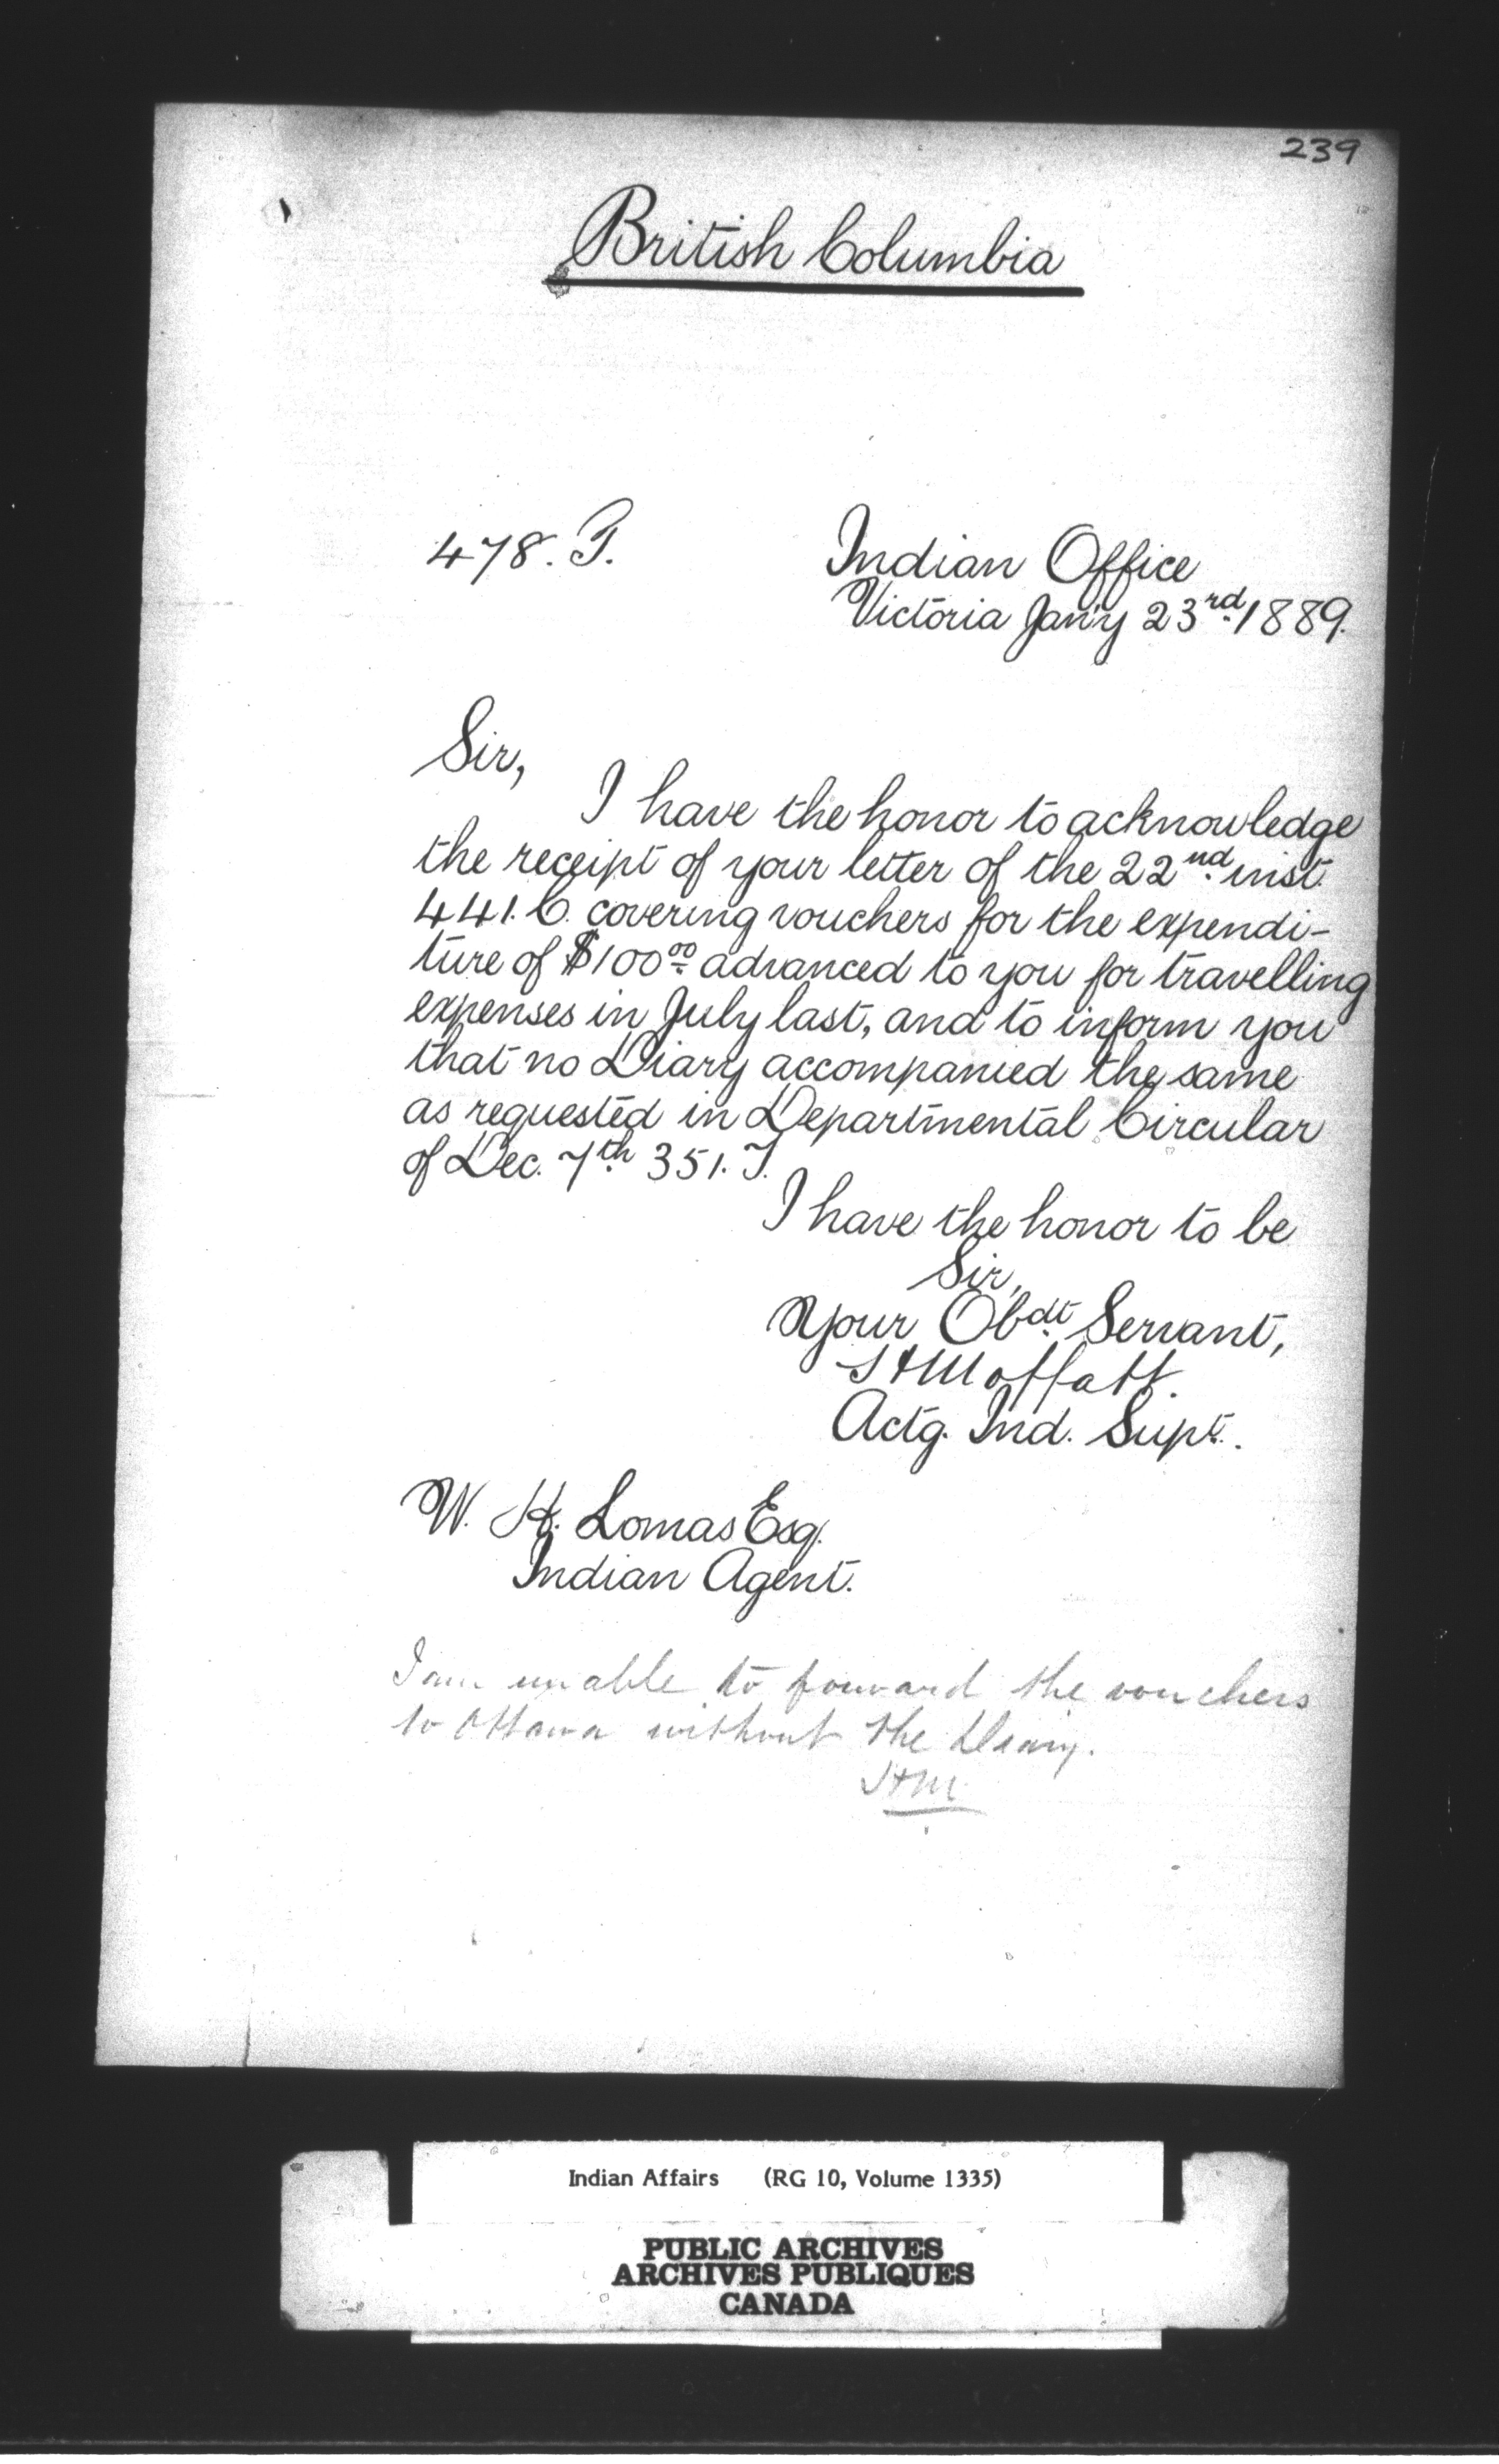 239
British Columbia
478. T.
Indian Office
Victoria Jan'y 23rd. 1889.
Sir,
I have the honor to acknowledge
the receipt of your letter of the 22nd. inst.
441. C. covering vouchers for the expendi-
ture of $100 00 advanced to you for travelling
expenses in July last, and to inform you
that no Diary accompanied the same
as requested in Departmental Circular
of Dec. 7th. 351. T.
I have the honor to be
Sir,
Your Obdt. Servant,
Moffatt.
Actg. Ind. Supt.
W. H. Lomas Esq.
Indian Agent.
I am unable to forward the vouchers
to Ottawa without the Diary.
HM
Indian Affairs (RG 10, Volume 1335)
PUBLIC ARCHIVES
ARCHIVES PUBLIQUES
CANADA